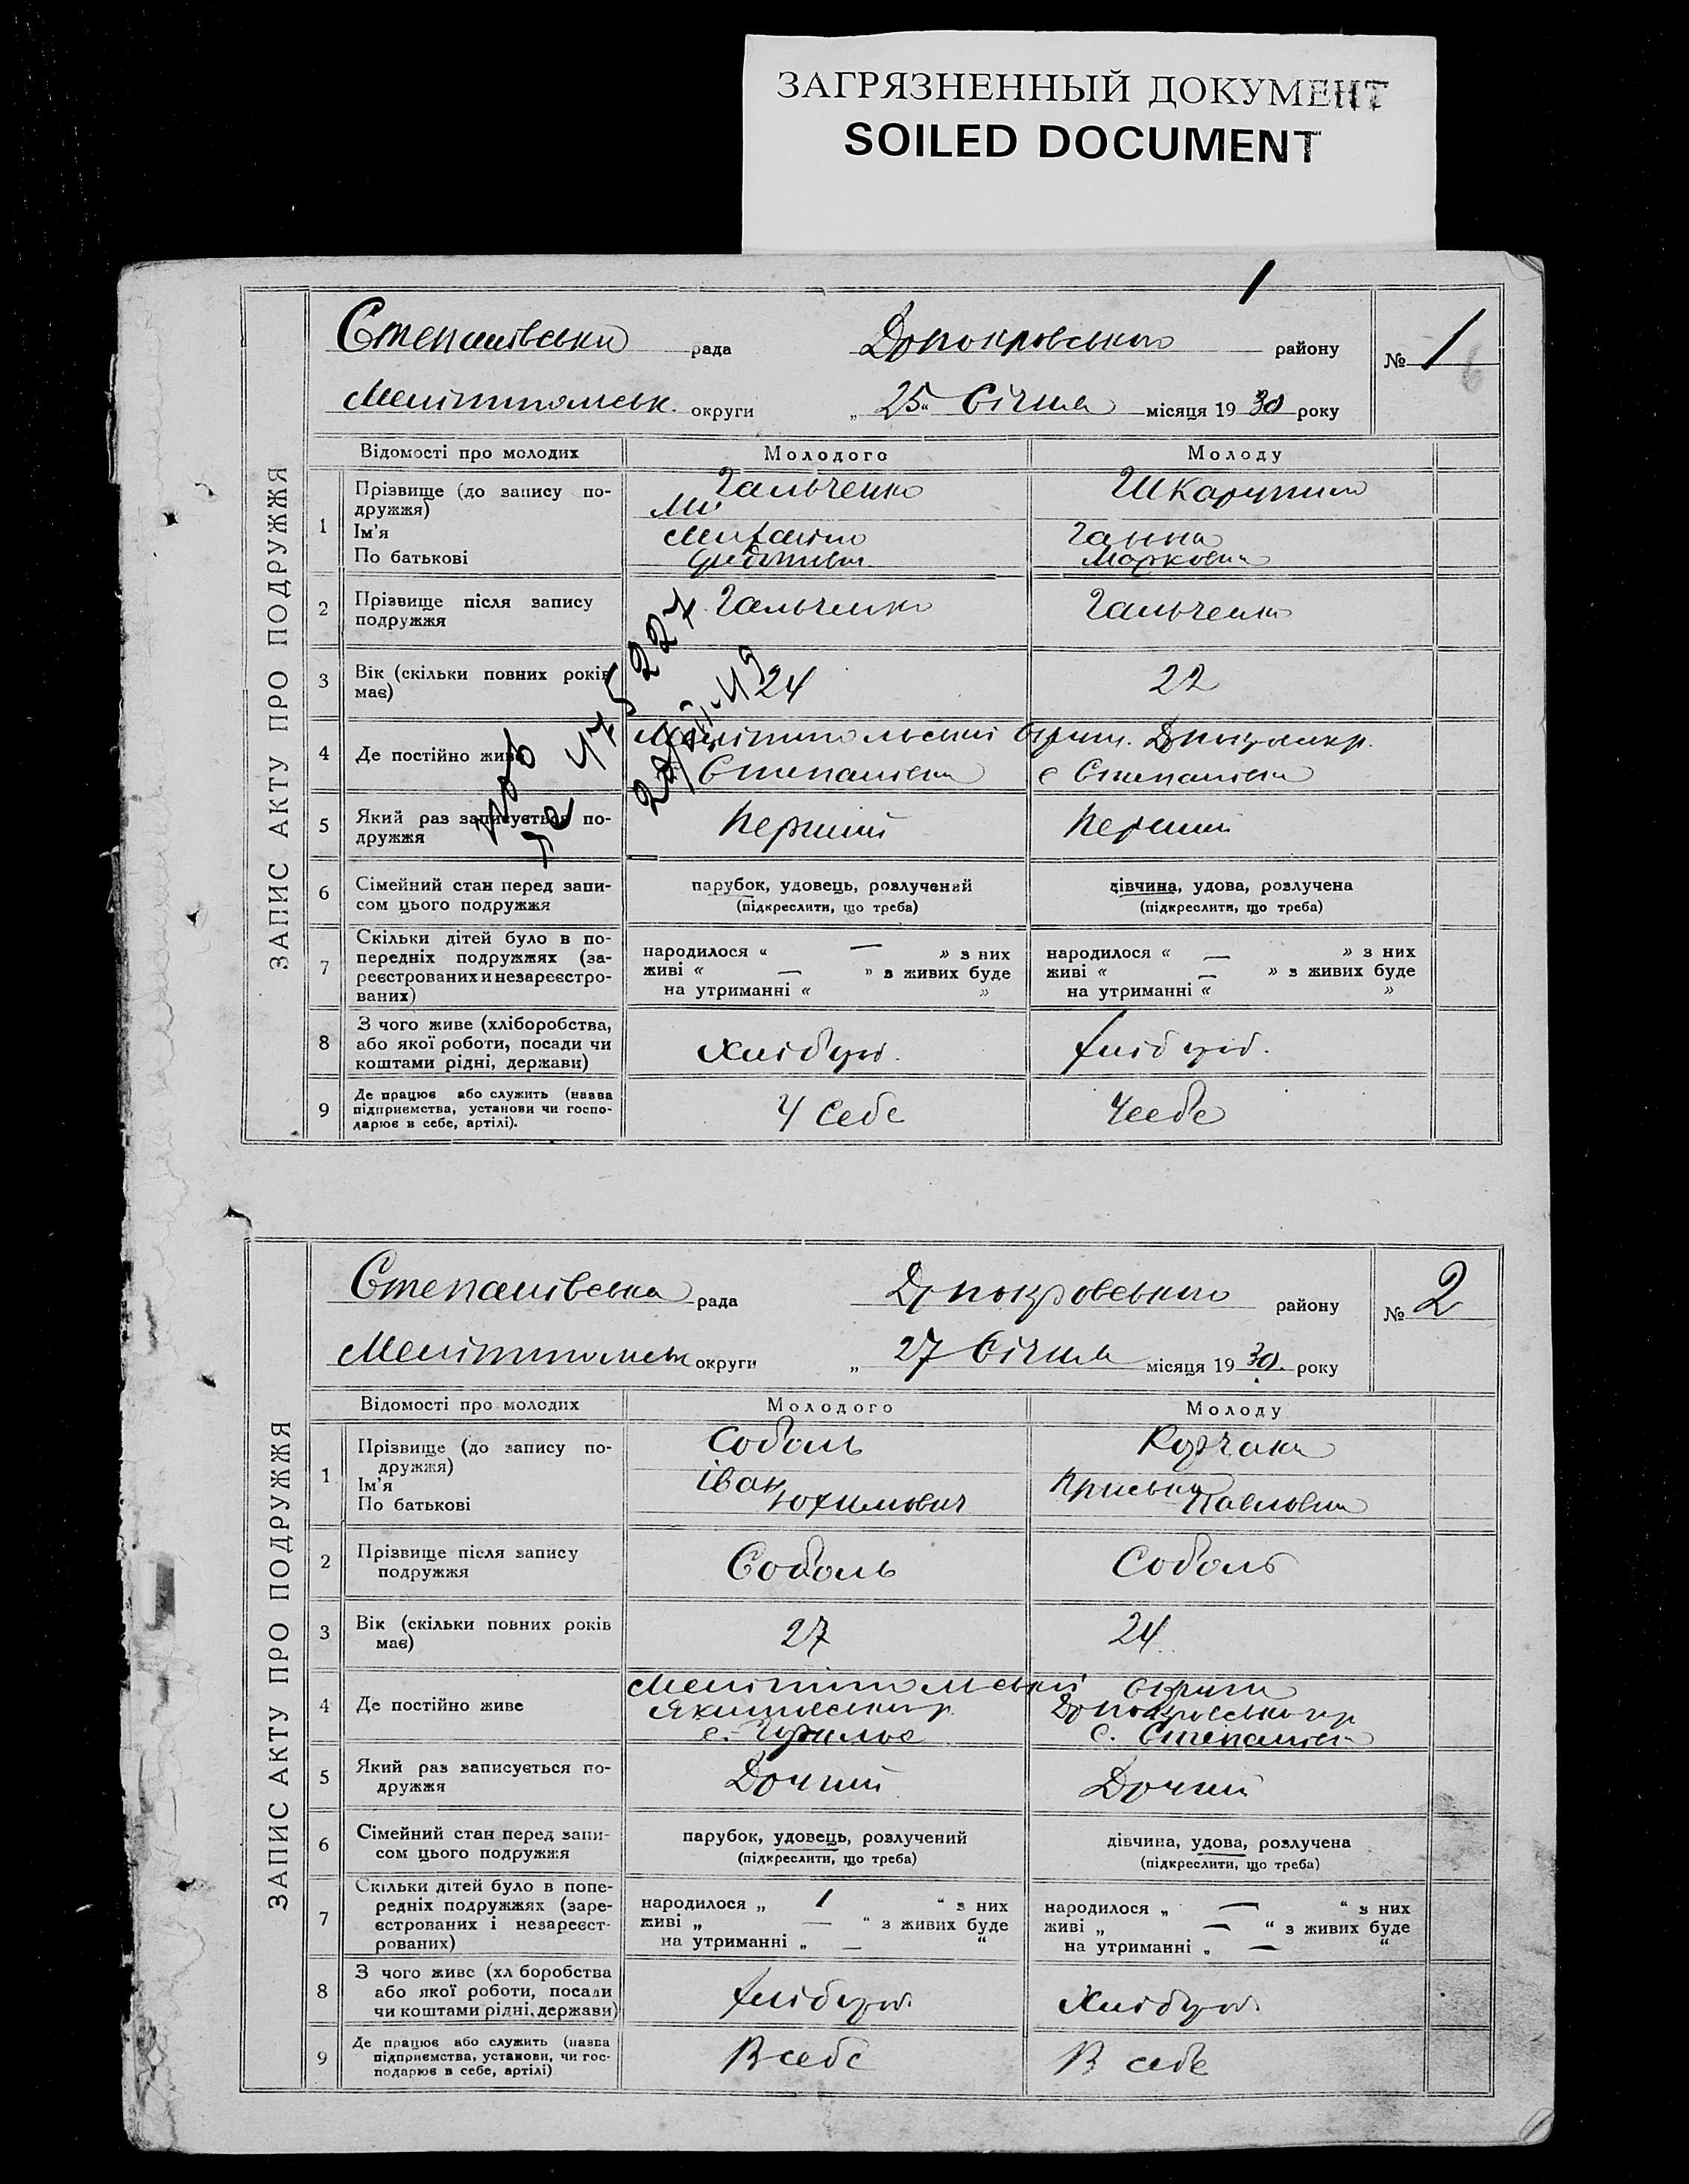 ЗАГРЯЗНЕННЫЙ ДОКУМЕНТ
SOILED DOCUMENT
1
ЗАПИС АКТУ ПРО ПОДРУЖЖЯ
Степанівська рада Дпокровського району № 1
6
Мелітопольськ. округи „ 25 " Січня місяця 19 30 року
Відомості про молодих Молодого Молоду
1 Прізвище (до запису по-
дружжя) Гальченко
Ім'я Ганна
По батькові Марковна
2 Прізвище після запису
подружжя Гальченко Гальченко
3 Вік (скільки повних років
має) 24 22
4 Де постійно живе Мелітопольський
Степанівка с Степанівка
5 Який раз записується по-
дружжя Перший Перший
6 Сімейний стан перед запи-
сом цього подружжя парубок, удовець, розлучений дівчина, удова, розлучена
(підкреслити, що треба) (підкреслити, що треба)
7 Скільки дітей було в по-
передніх подружжях (за-
реєстрованих и незареєстро-
ваних) народилося « — » з них народилося « — » з них
живі « — » з живих буде живі « — » з живих буде
на утриманні « » на утриманні « »
8 З чого живе (хліборобства,
або якої роботи, посади чи
коштами рідні, держави) хлібороб. хлібороб.
9 Де працює або служить (назва
підприємства, установи чи госпо-
дарює в себе, артілі). У себе У себе
ЗАПИС АКТУ ПРО ПОДРУЖЖЯ
Степанівська рада Дпокровського району № 2
Мелітопольськ округи „ 27 Січня місяця 19 30. року
Відомості про молодих Молодого Молоду
1 Прізвище (до запису по-
дружжя) Соболь
Ім'я Іван Приська
По батькові Юхимович Павловна
2 Прізвище після запису
подружжя Соболь Соболь
3 Вік (скільки повних років
має) 27 24
4 Де постійно живе Мелітопольський округи
Якимівського р. Дпокровського р
с. с. Степанівка
5 Який раз записується по-
дружжя
6 Сімейний стан перед запи-
сом цього подружжя парубок, удовець, розлучений дівчина, удова, розлучена
(підкреслити, що треба) (підкреслити, що треба)
7 Скільки дітей було в попе-
редніх подружжях (заре-
єстрованих і незареєст-
рованих) народилося „ 1 " з них народилося „ — " з них
живі „ — " з живих буде живі „ — " з живих буде
на утриманні „ — " на утриманні „ — "
8 З чого живе (хл боробства
або якої роботи, посади
чи коштами рідні, держави) хлібороб. хлібороб.
9 Де працює або служить (назва
підприємства, установи, чи гос-
подарює в себе, артілі) В себе В себе